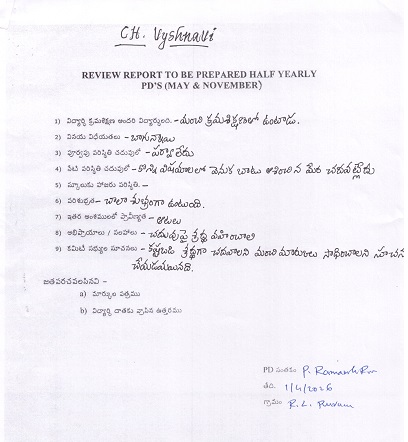 CH. Vyshnavi
REVIEW REPORT TO BE PREPARED HALF YEARLY
PD'S (MAY & NOVEMBER)
1) విద్యార్థి క్రమశిక్షణ అందరి విద్యార్థులది. - మంచి క్రమశిక్షణలో ఉంటాడు.
2) వినయ విధేయతలు - బాగున్నాయి
3) పూర్వపు పరిస్థితి చదువులో - పర్వాలేదు
4) నేటి పరిస్థితి చదువులో - కొన్ని విషయాలలో వెనుక బాటు ఆశించిన మేర చదవట్లేదు
5) స్కూలుకు హాజరు పరిస్థితి. -
6) పరిశుభ్రత - చాలా శుభ్రంగా ఉంటుంది.
7) ఇతర అంశములతో ప్రావీణ్యత - ఆటలు
8) అభిప్రాయాలు / సలహాలు - చదువుపై శ్రద్ధ వహించాలి
9) కమిటీ సభ్యుల సూచనలు - కష్టపడి శ్రద్ధగా చదవాలని మంచి మార్కులు సాధించాలని సూచన
చేయడమయినది.
జతపరచవలసినవి –
a) మార్కుల పత్రము
b) విద్యార్థి దాతకు వ్రాసిన ఉత్తరము
PD సంతకం P.
తేది. 1/4/2026
గ్రామం R.L. Puram